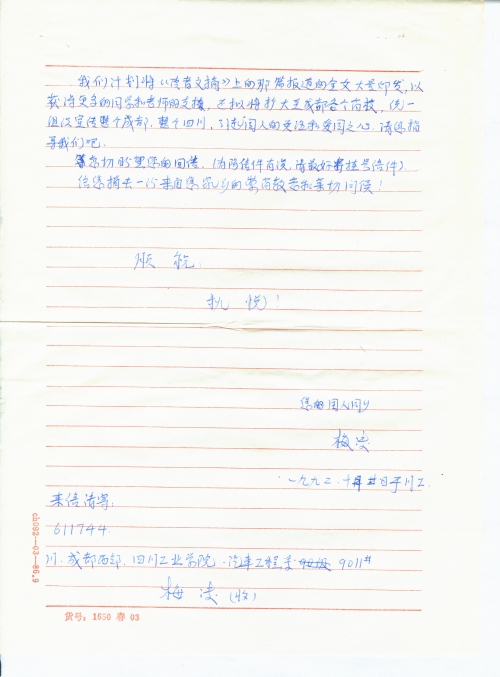 我们计划将《读者文摘》上的那篇报道的全文大量印发,以
获得更多的同学和老师的支援,还拟将扩大至成都各个高校,统一
组织宣传整个成都,整个四川,引起国人的关注和爱国之心。请您指
导我们吧。
急切盼望您的回信。(为防信件有误,请最好寄挂号信件)
给您捎去一份来自您家乡的崇高敬意和亲切问候!
顺祝:
执悦!
您的国人同乡
梅凌
一九九二.十 日于川工.
来信请寄:
611744
川.成都西郊.四川工业学院.汽车工程系 9011#
梅凌(收)
货号:1650 春 03
cb092—03—86.9